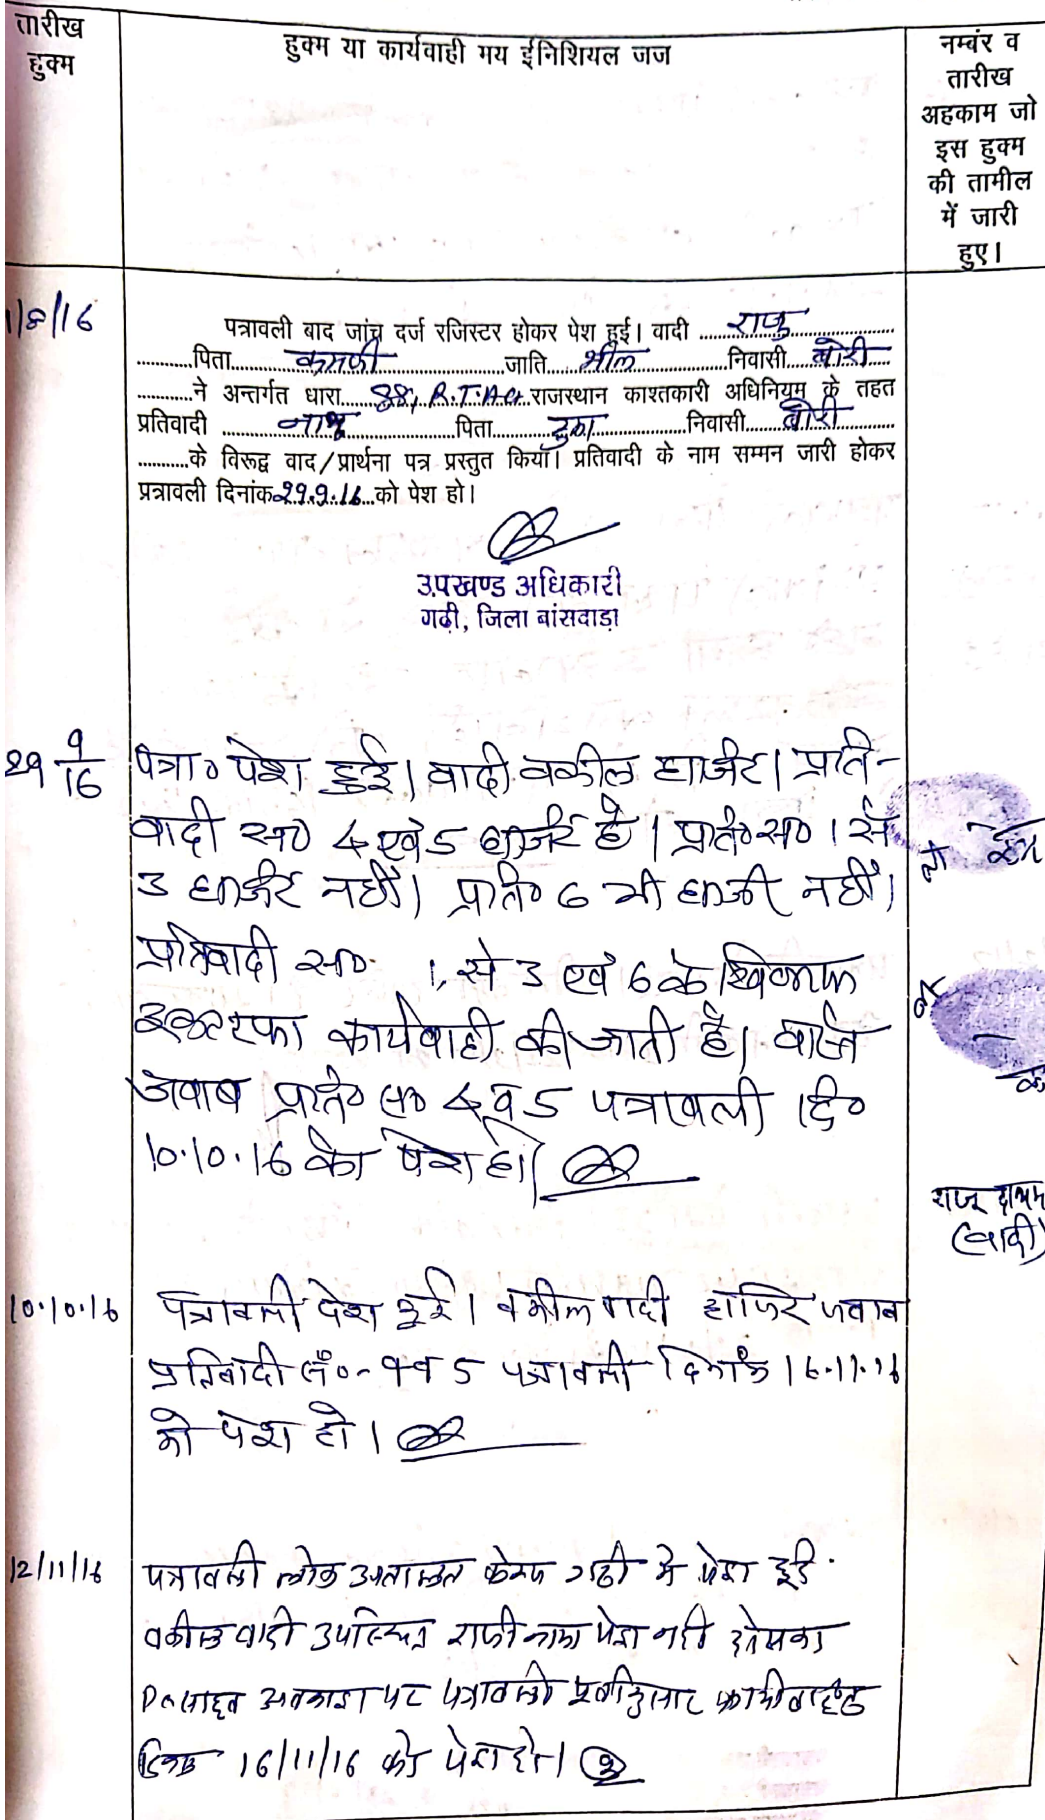 तारीख
हुक्म
हुक्म या कार्यवाही मय ईनिशियल जज
नम्बंर व
तारीख
अहकाम जो
इस हुक्म
की तामील
में जारी
हुए।
1/8/16
पत्रावली बाद जांच दर्ज रजिस्टर होकर पेश हुई। वादी राजु
पिता कमजी जाति भील निवासी बोरी
ने अन्तर्गत धारा 88, R.T.Act राजस्थान काश्तकारी अधिनियम के तहत
प्रतिवादी नाथु पिता निवासी बोरी
के विरूद्व वाद/प्रार्थना पत्र प्रस्तुत किया। प्रतिवादी के नाम सम्मन जारी होकर
प्रत्रावली दिनांक 29.9.16 को पेश हो।
उपखण्ड अधिकारी
गढ़ी, जिला बांसवाड़ा
29 9/16
पत्रा० पेश हुई। वादी वकील हाजीर। प्रति-
वादी स० 4 एवं 5 हाजीर है। प्रति० स० 1 से
3 हाजीर नहीं। प्रति० 6 भी हाजीर नहीं।
प्रतिवादी स० 1 से 3 एवं 6 के खिलाफ
इकतरफा कार्यवाही की जाती है। वास्ते
जवाब प्रति० स० 4 व 5 पत्रावली दि०
10.10.16 को पेश हो।
राजू
(वादी)
10.10.16
पत्रावली पेश हुई। वकील वादी हाजिर जवाब
प्रतिवादी सं०- 4 व 5 पत्रावली दिनांक 16.11.16
को पेश हो।
12/11/16
पत्रावली लोक अदालत केम्प गढी मे पेश हुई.
वकील वादी उपस्थित राजीनामा पेश नही
अवकाश पर पत्रावली पूर्वानुसार
दिनांक 16/11/16 को पेश हो।